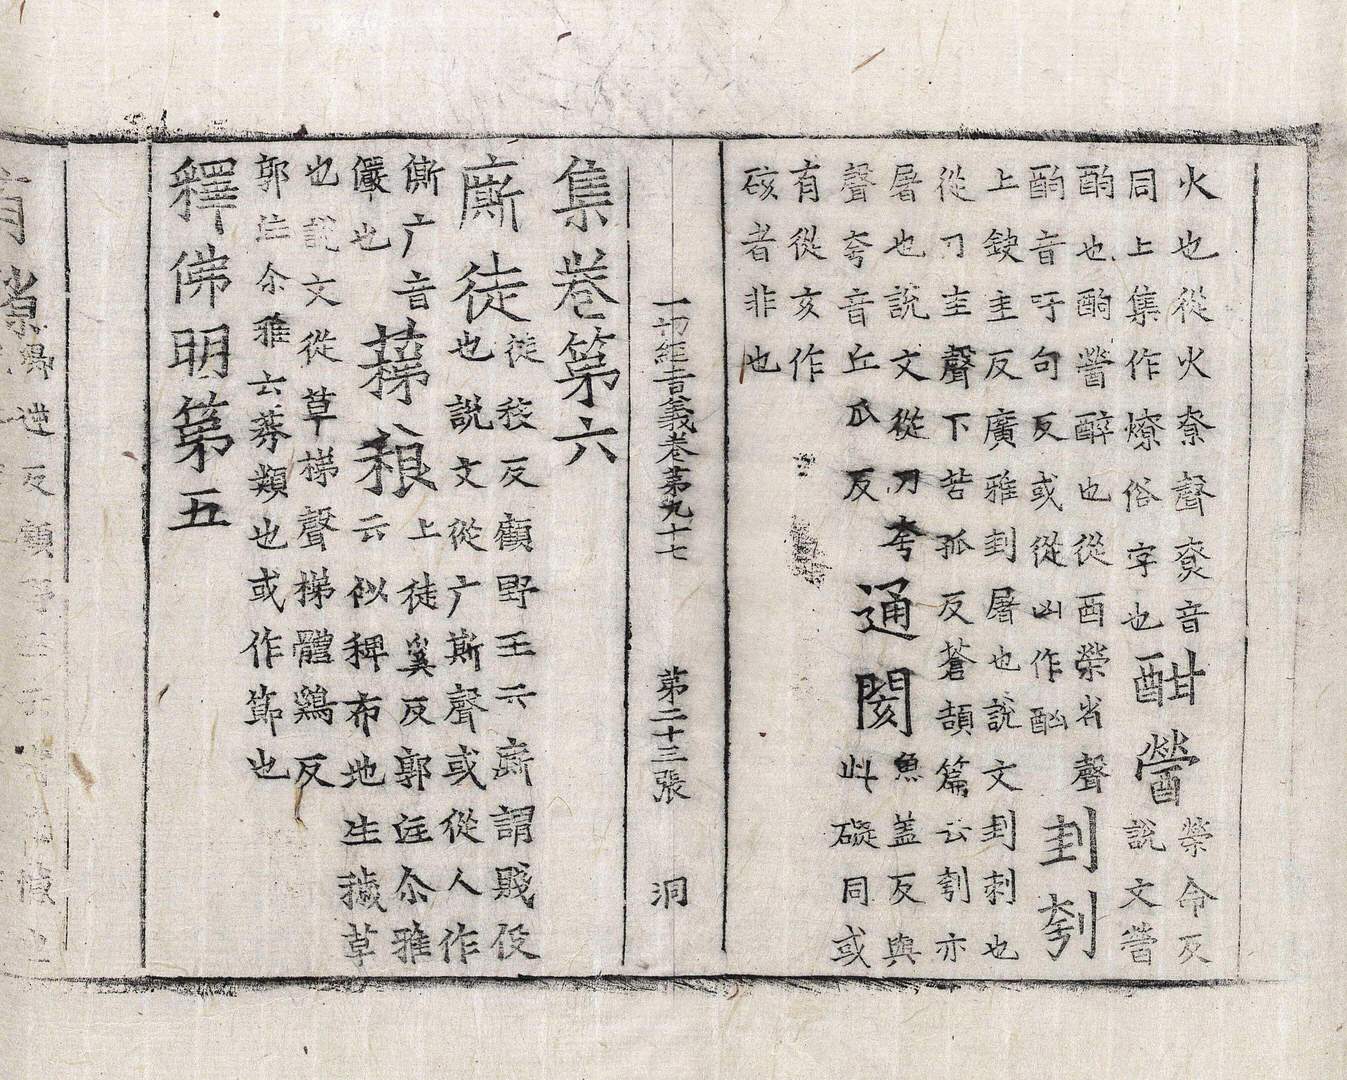 火也從火尞聲尞音
同上集作燎俗字也酣醟榮命反
說文醟
酌也酌醟醉也從酉榮省聲
酌音吁句反或從凶作酗刲刳
上鈌圭反廣雅刲屠也說文刲刺也
從刀圭聲下苦孤反蒼頡篇云刳亦
屠也說文從刀夸通閡魚盖反與
聲夸音丘瓜反
此礙同或
有從亥作
硋者非也
一切經音義卷第九十七 第二十三張 洞
集卷第六
廝徒徒󠄀反顧野王云廝謂賤伇
也說文從广斯聲或從人作
傂广音
儼也
蕛稂上徒奚反郭注尒雅
云似稗布地生穢草
也說文從草梯聲梯體鷄反
郭注尒雅云莠類也或作節也
釋佛明第五